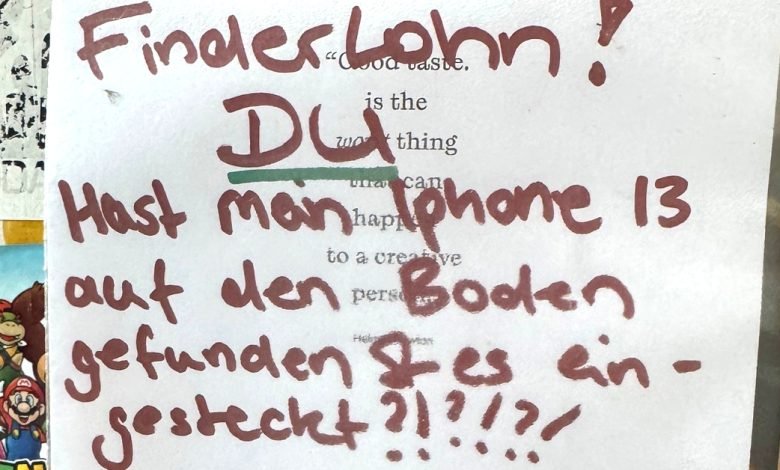 FinderLohn!
DU
Hast mein Iphone 13
auf den Boden
gefunden & es ein-
gesteckt?!?!?!
“Good taste.
is the
worst thing
that can
happen
to a creative
person